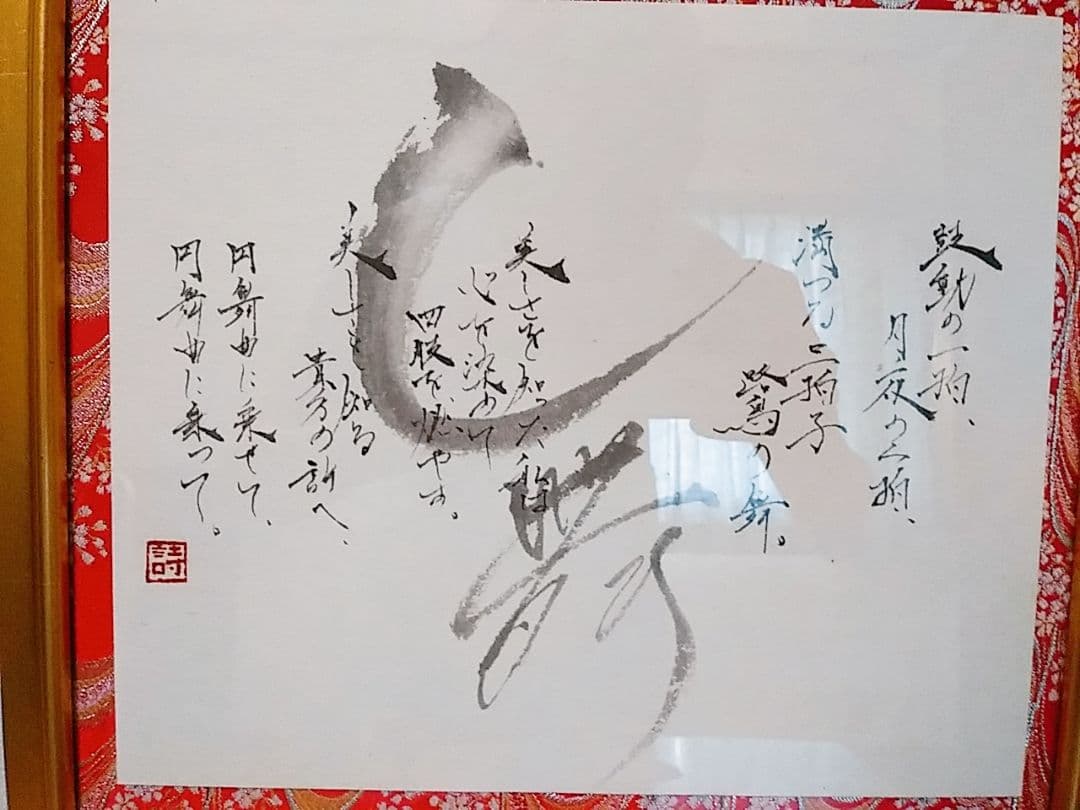 鼓動の一拍、
月夜の拍、
満つる拍子
鷺の舞。
美しさを知った私は
心を染めて
四肢を燃やす。
美しさを知る
貴方の許へ、
円舞曲に乗せて、
円舞曲に乗って。
詩